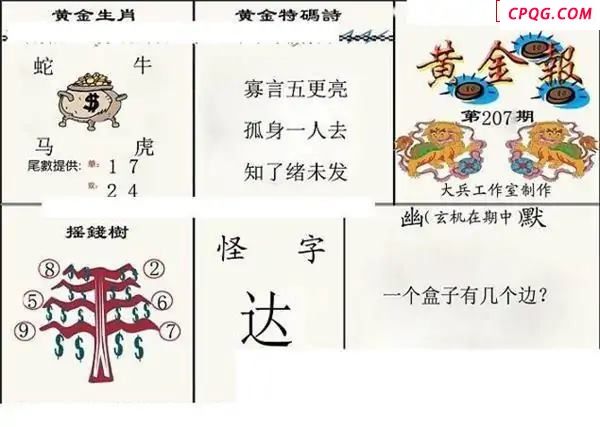 CPQG.COM
黄金生肖
蛇 牛
$
马 虎
尾數提供: 單: 1 7
双: 2 4
黄金特碼詩
寡言五更亮
孤身一人去
知了绪未发
黄金報
第207期
大兵工作室制作
摇錢樹
⑧ ②
⑤ ⑥
⑨ ⑦
$ $ $ $ $ $ $ $ $ $ $ $
怪 字
达
幽(玄机在期中)默
一个盒子有几个边?